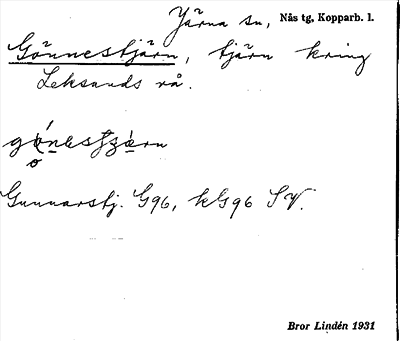 Järna sn, Nås tg, Kopparb. l.
Gönnestjärn, tjärn kring
Leksands rå.
Gunnarstj. G96, kG96 SV.
Bror Lindén 1931